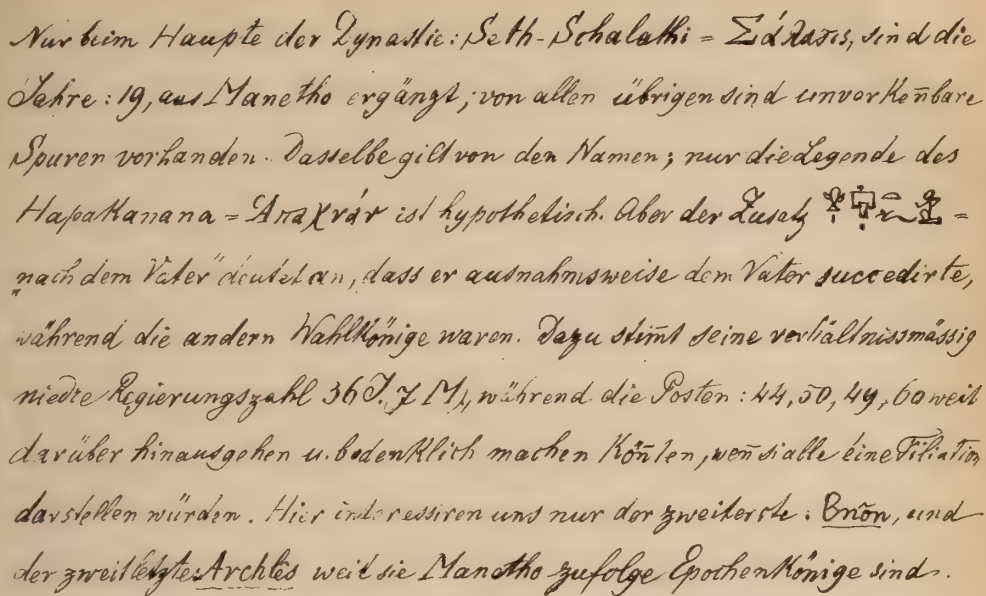 Nur beim Haupte der Dynastie: Seth-Schalathi = Σάλατις, sind die
Jahre: 19, aus Manetho ergänzt; von allen übrigen sind unverkeñbare
Spuren vorhanden. Dasselbe gilt von den Namen; nur die Legende des
Hapakanana = Απαχνάν ist hypothetisch. Aber der Zusatz =
„nach dem Vater" deutet an, dass er ausnahmsweise dem Vater succedirte,
während die andern Wahlkönige waren. Dazu stim̄t seine verhältnissmässig
niedre Regierungszahl 36 J. 7 M., während die Posten: 44, 50, 49, 60 weit
darüber hinausgehen u. bedenklich machen Köñten, weñ sie alle eine Filiation
darstellen würden. Hier interessiren uns nur der zweiterste: Bnōn, und
der zweitletzte: Archlēs weil sie Manetho zufolge Epochenkönige sind.